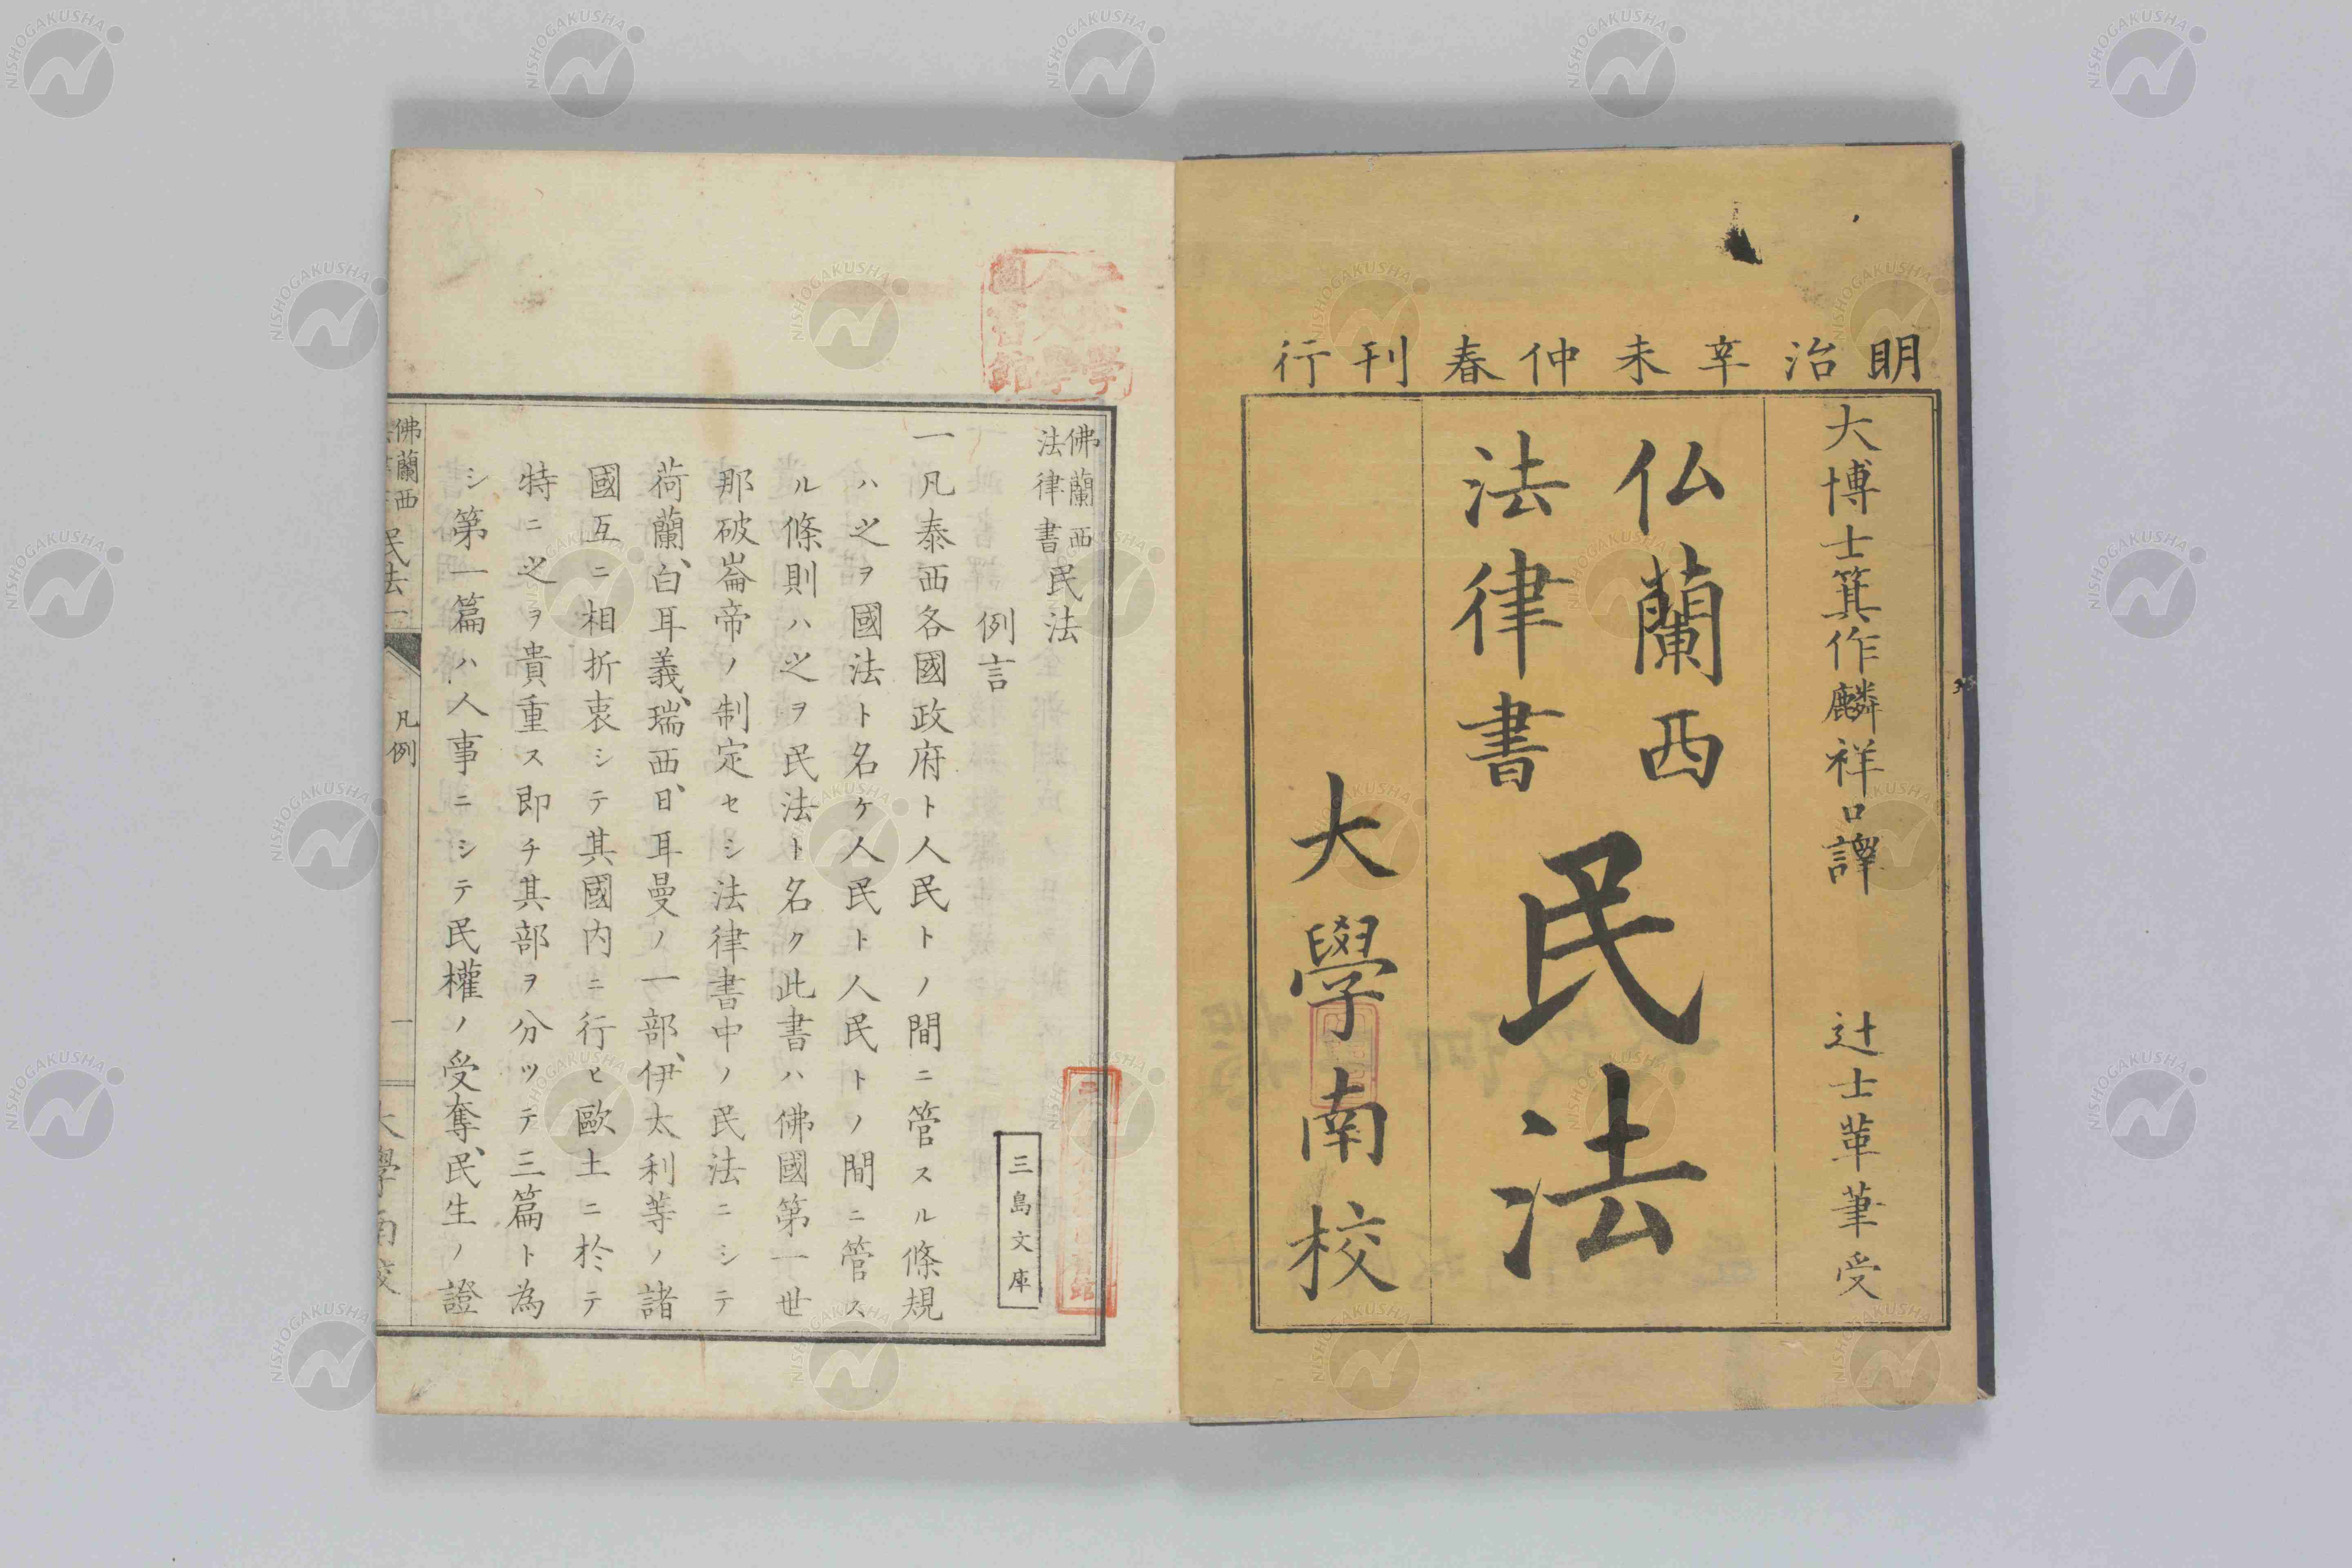 明治辛未仲春刊行
大博士箕作麟祥口譯 辻士革筆受
仏蘭西
法律書
民法
大學南校
佛蘭西
法律書
民法
例言
一凡泰西各國政府ト人民トノ間ニ管スル條規
ハ之ヲ國法ト名ケ人民ト人民トノ間ニ管ス
ル條則ハ之ヲ民法ト名ク此書ハ佛國第一世
那破崙帝ノ制定セシ法律書中ノ民法ニシテ
荷蘭、白耳義、瑞西、日耳曼ノ一部、伊太利等ノ諸
國互ニ相折衷シテ其國内ニ行ヒ歐土ニ於テ
特ニ之ヲ貴重ス即チ其部ヲ分ツテ三篇ト為
シ第一篇ハ人事ニシテ民權ノ受奪、民生ノ證
三島文庫
佛蘭西
民法一
凡例
一
大學南校
NISHOGAKUSHA